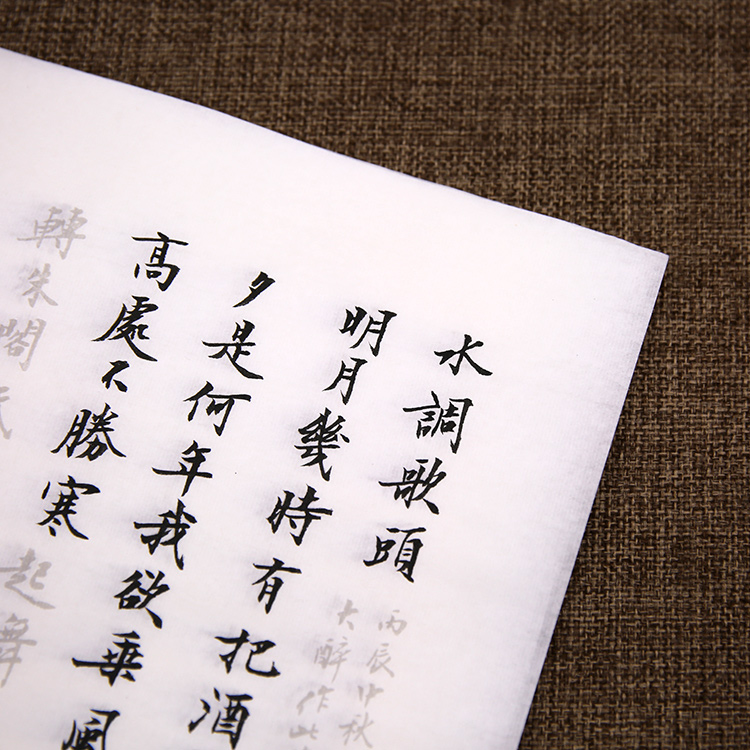 水調歌頭
丙辰中秋
大醉作此
明月幾時有把酒
夕是何年我欲乘風
高處不勝寒起舞
轉朱閣